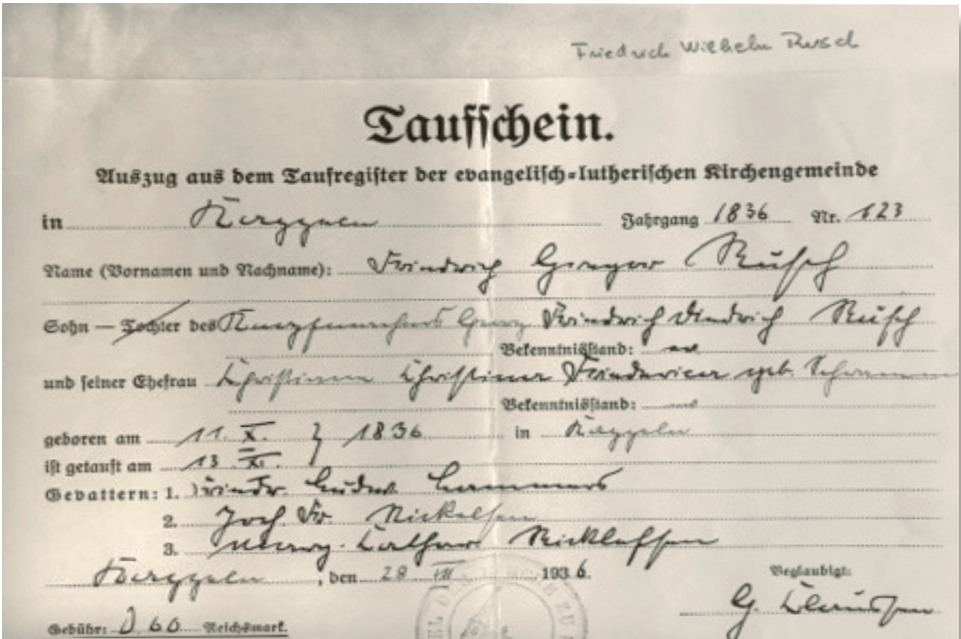 Friedrich Wilhelm Rusch
Taufschein.
Auszug aus dem Taufregister der evangelisch-lutherischen Kirchengemeinde
in Kappeln Jahrgang 1836 Nr. 123
Name (Vornamen und Nachname): Friedrich Rusch
Sohn — Tochter des Georg Friedrich Diedrich Rusch
Bekenntnisstand: ev
und seiner Ehefrau Christina Christiane Friederica geb.
Bekenntnisstand: ev
geboren am 11. X. } 1836 in Kappeln
ist getauft am 13. XI.
Gevattern: 1. Friedr. Lammers
2. Joch. Fr. Nickelsen
3. Marg. Cathar. Nicklassen
Kappeln, den 28 VII 1936.
Beglaubigt:
G. Claussen
Gebühr: 0,60 Reichsmark.